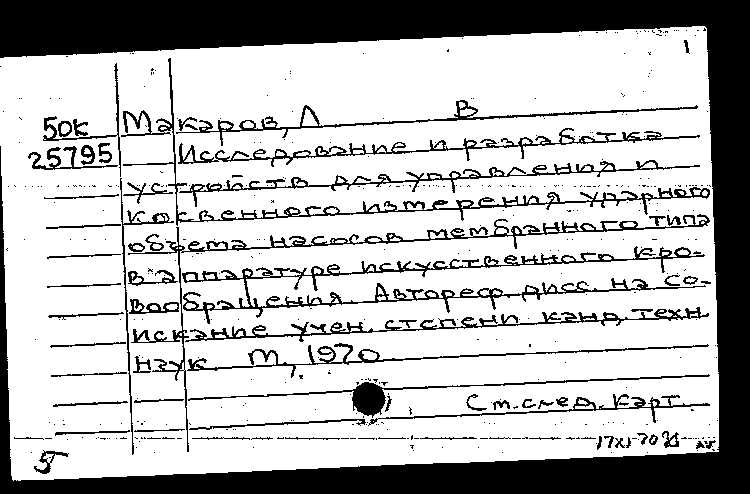 1
50к Макаров, Л В
25795 Исследование и разработка
устройств для управления и
косвенного измерения ударного
объема насосов мембранного типа
в аппаратуре искусственного кро-
вообращения. Автореф. дисс. на со-
искание учен. степени канд. техн.
наук. М., 1970.
См. след. карт.
17 XI 70
5